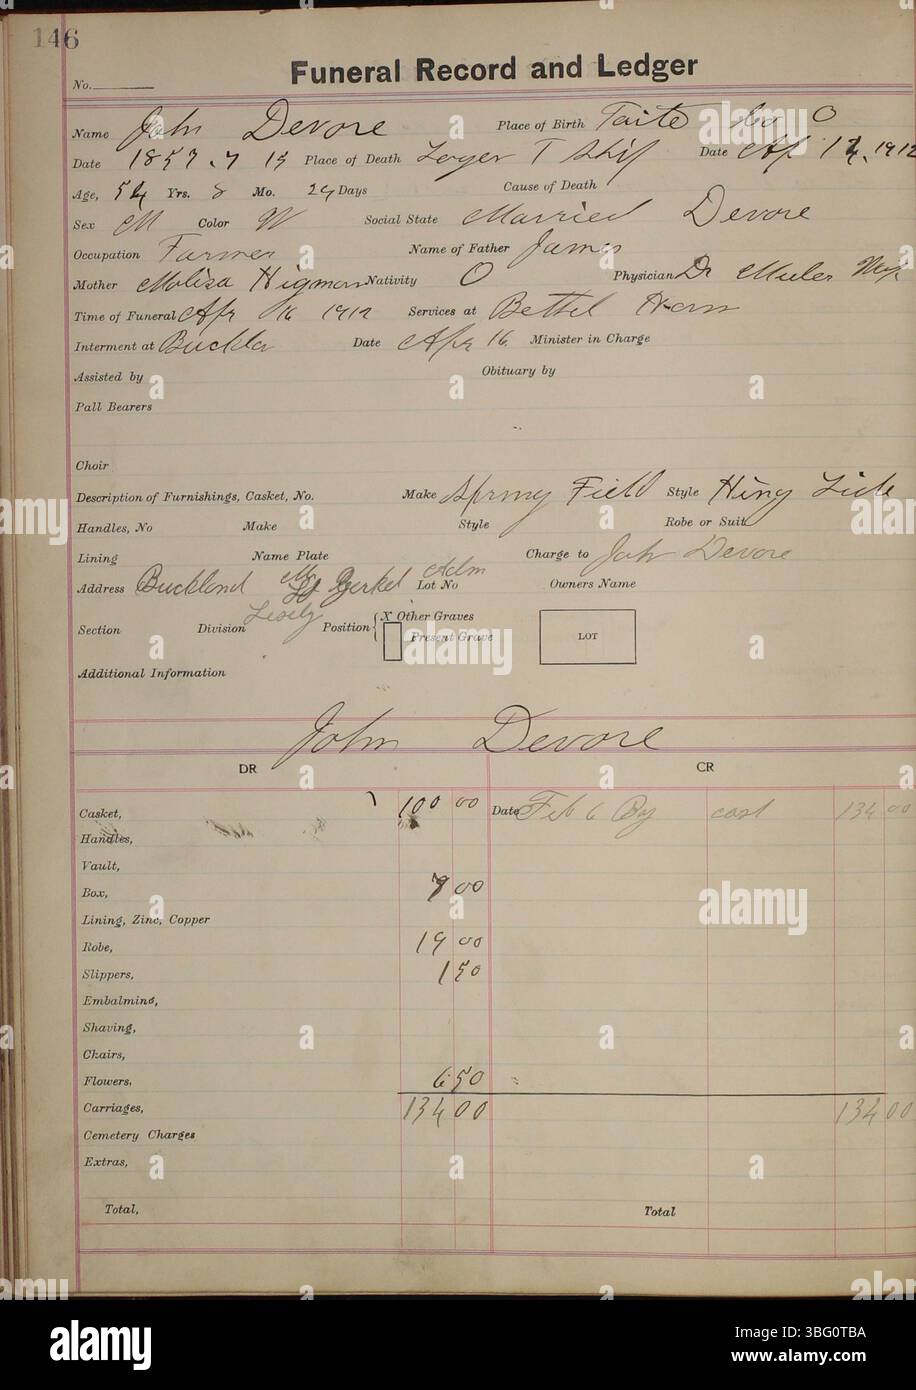 146
Funeral Record and Ledger
No.
Name John Devore Place of Birth Co O
Date 1857.7 15 Place of Death Loger T Ship Date Ap 14, 1912
Age, 54 Yrs. 8 Mo. 29 Days Cause of Death
Sex M Color W Social State Married Devore
Occupation Farmer Name of Father James
Mother Molisa Higman Nativity O Physician Dr
Time of Funeral Apr 16 1912 Services at Bethel
Interment at Date Apr 16. Minister in Charge
Assisted by Obituary by
Pall Bearers
Choir
Description of Furnishings, Casket, No. Make Spring Field Style Hing Lide
Handles, No Make Style Robe or Suit
Lining Name Plate Charge to John Devore
Address Buckland Adm Lot No Owners Name
Section Division Position X Other Graves
Present Grave
LOT
Additional Information
John Devore
DR CR
Casket, 100 00 Date Feb 6 By cash 134 00
Handles,
Vault,
Box, 7 00
Lining, Zinc, Copper
Robe, 19 00
Slippers, 1 50
Embalming,
Shaving,
Chairs,
Flowers, 6 50
Carriages, 134 00 134 00
Cemetery Charges
Extras,
Total, Total
alamy
Image ID: 3BG0TBA
www.alamy.com